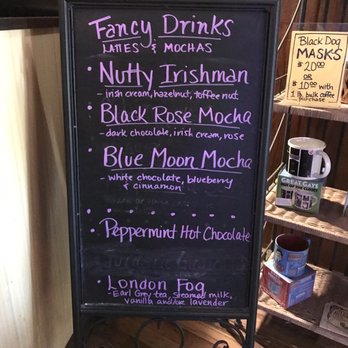 Fancy Drinks
LATTES & MOCHAS
• Nutty Irishman
- irish cream, hazelnut, toffee nut
• Black Rose Mocha
- dark chocolate, irish cream, rose
• Blue Moon Mocha
- white chocolate, blueberry
& cinnamon
• Peppermint Hot Chocolate
• London Fog
- Earl Grey tea, steamed milk,
vanilla and/or lavender
Black Dog
MASKS
$20.00
OR
$10.00 with
1 lb. bulk coffee
purchase
GREAT GAYS